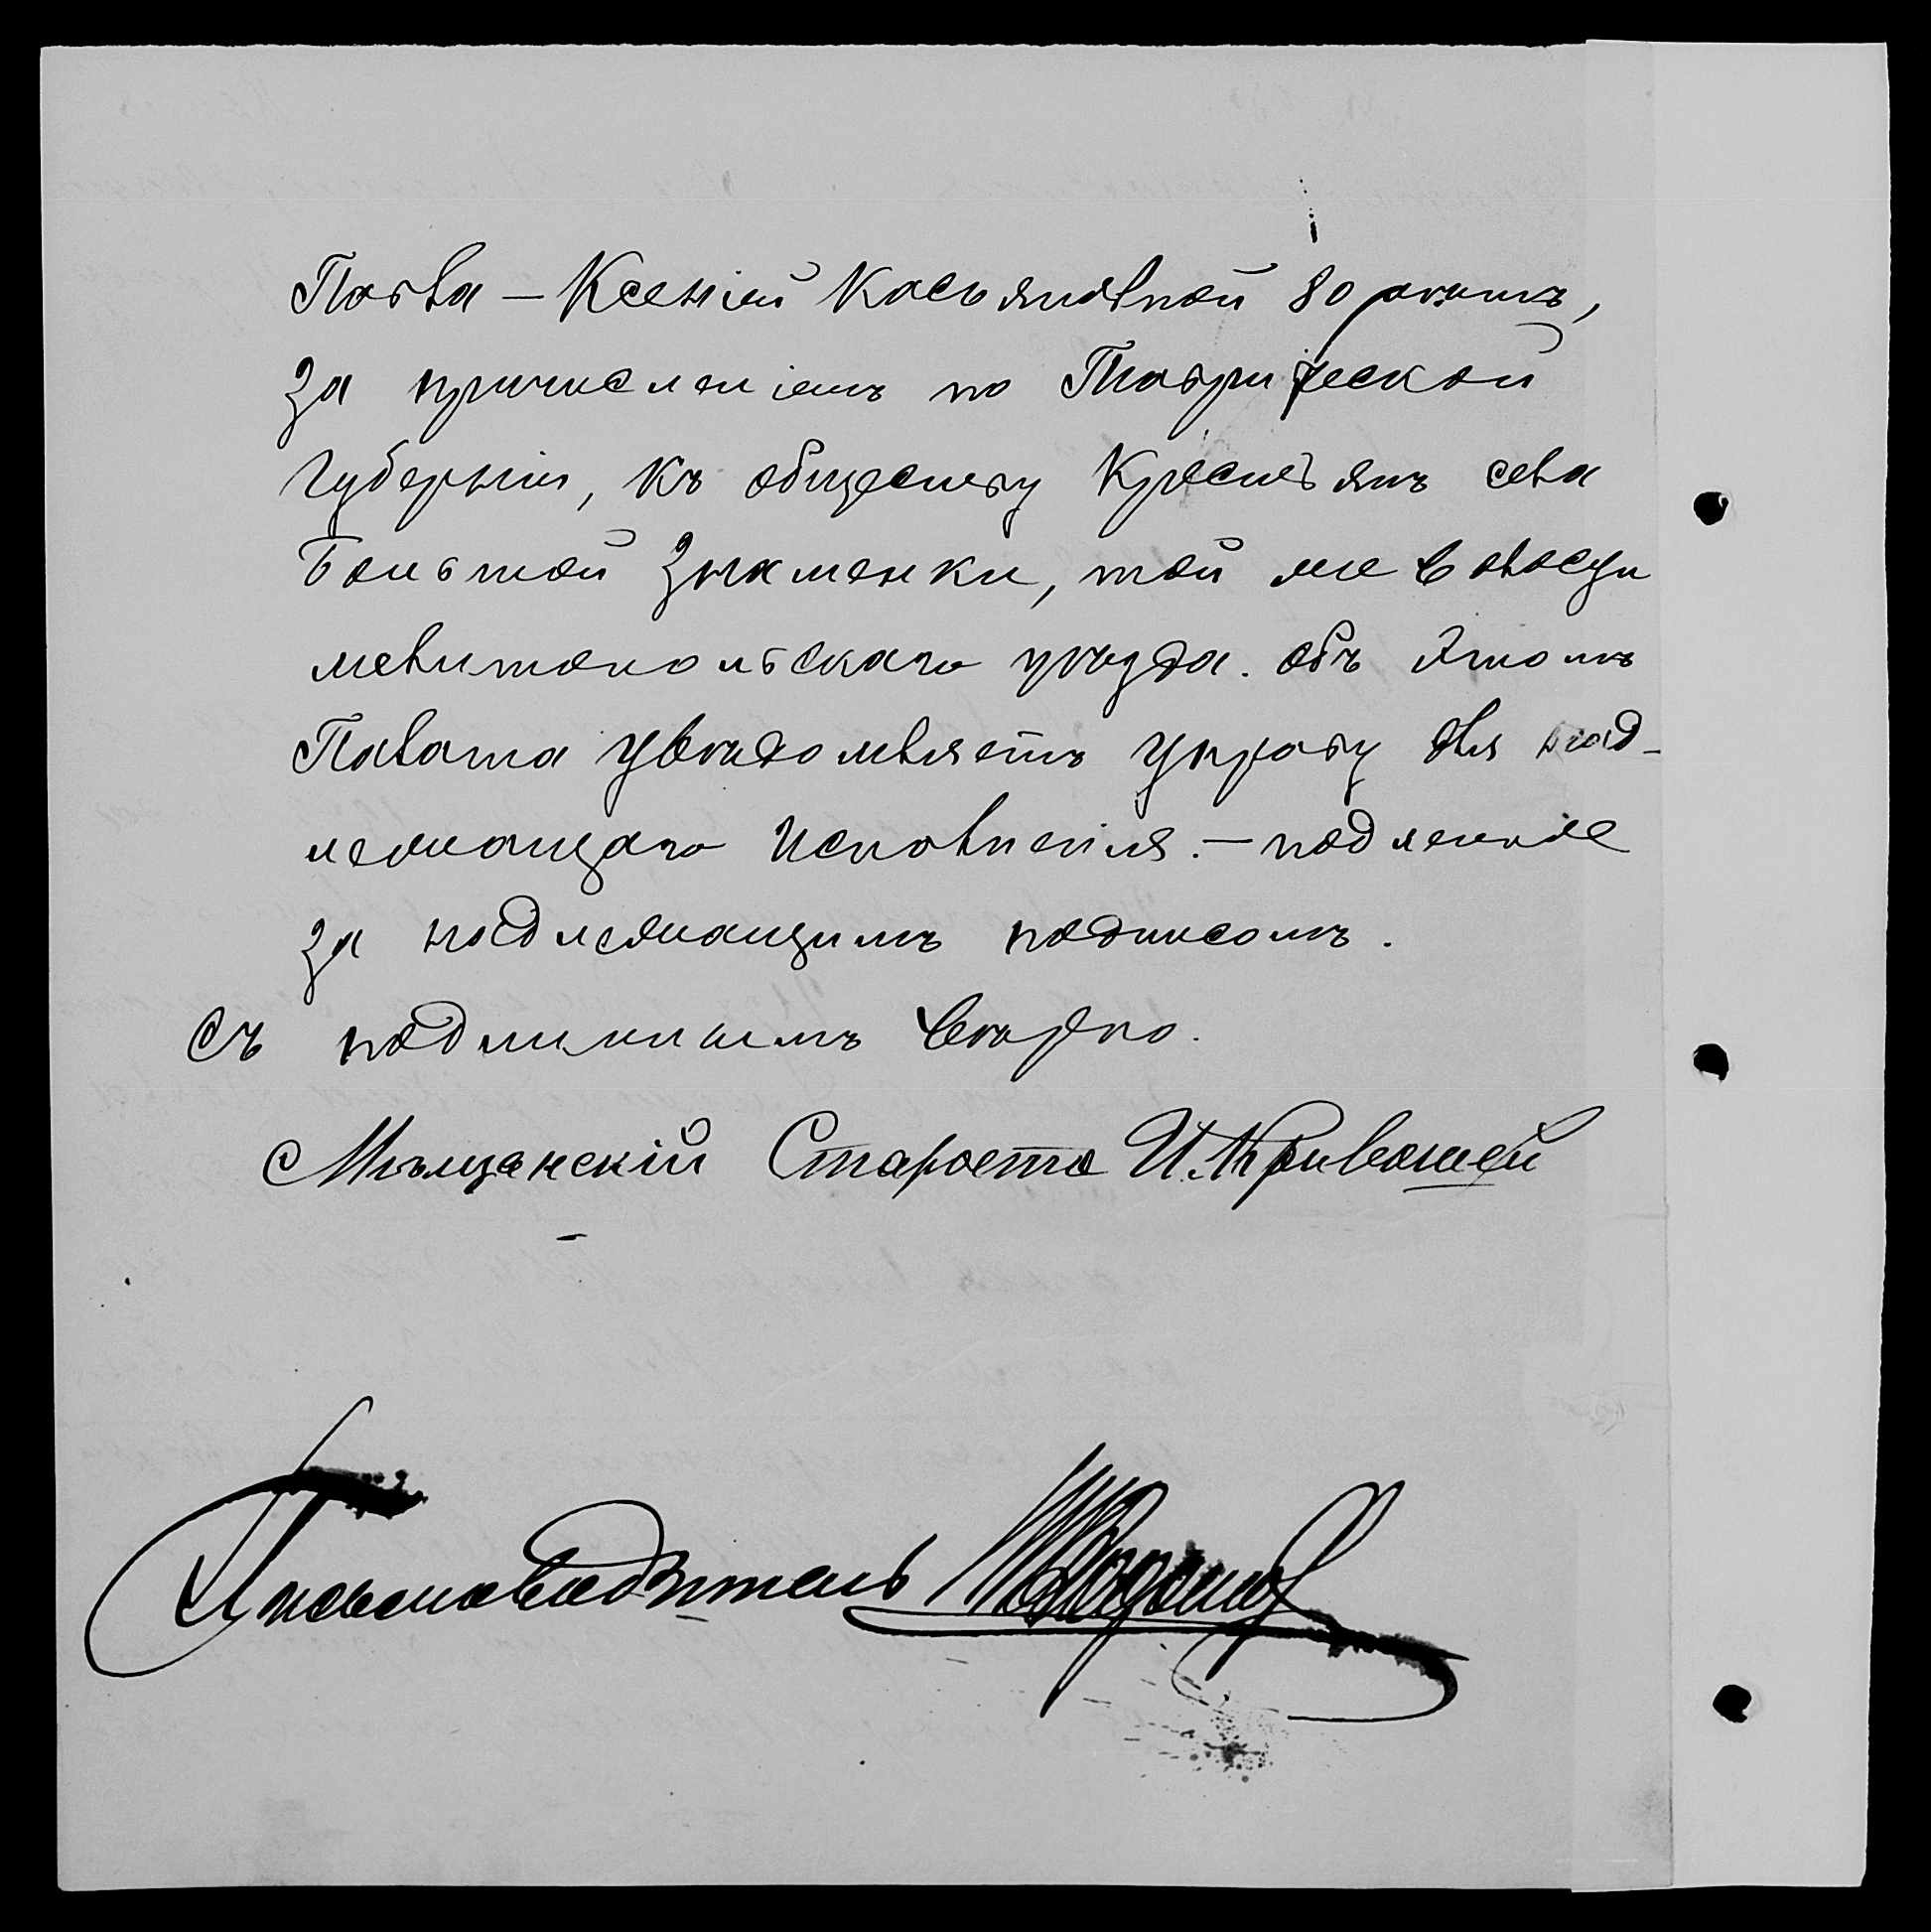 Павла – Ксеніей Касьяновной 80 лѣтъ,
за причисленіемъ по Таврической
Губерніи, къ обществу Крестьянъ села
Большой Знаменки, той же волости
мелитопольскаго уѣзда. объ Этомъ
Палата увѣдомляетъ управу для над-
лежащаго Исполненія. – подленное
за надлежащимъ подписомъ.
Съ подлиннымъ вѣрно.
Мѣщанскій Староста И. Кривошей
Письмоводитель